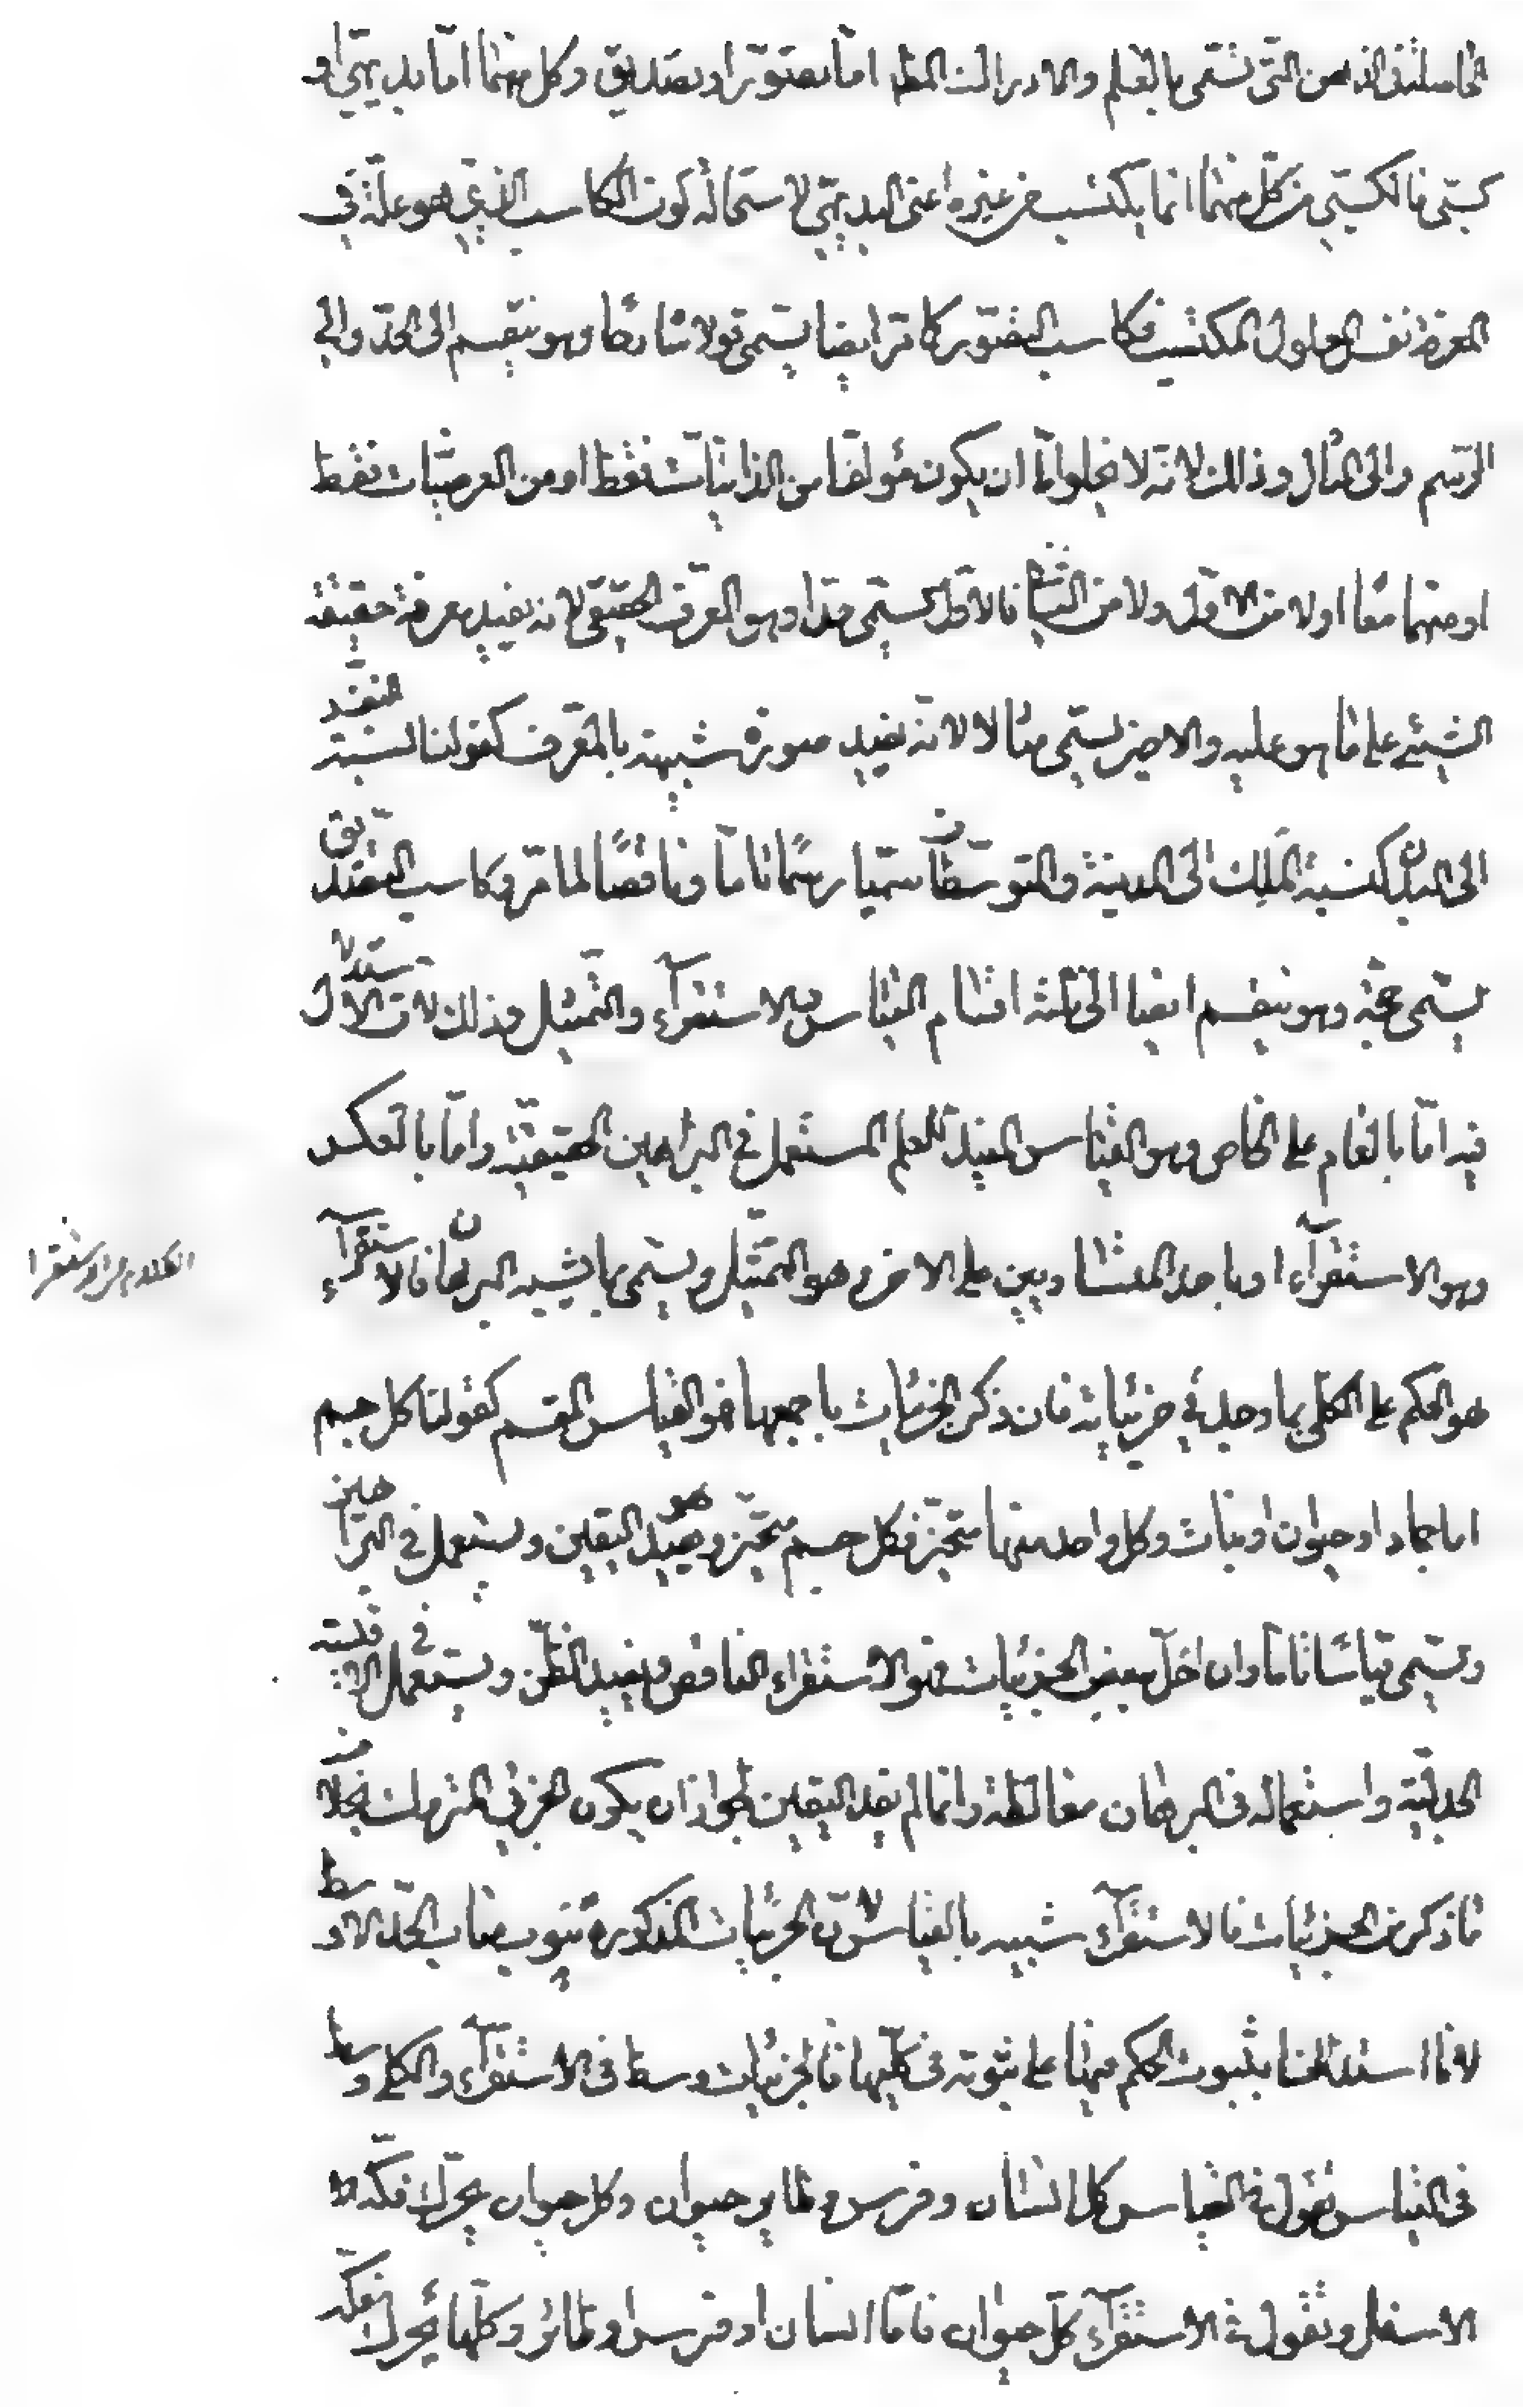 الحاصلة فى الذهن التى تسمى بالعلم والادراك المط اما تصور او تصديق وكل منهما اما بديهى او
كسبى فالكسبى من كل منهما انما يكتسب من غيره اعنى البديهى لاستحالة كون الكاسب الذى هو علة فى
المعرفة نفس المعلول المكتسب فكاسب التصور كا مر ايضا يسمى قولا شارحا وهو ينقسم الى الحد والى
الرسم والى المثال وذلك لانه لا يخلو اما ان يكون مؤلفا من الذاتيات فقط او من العرضيات فقط
او منهما معا او لا من الاول ولا من الثانى فالاول يسمى حدا وهو المعرف الحقيقى لانه يفيد معرفة حقيقة
الشئ على ما هو عليه والاخير يسمى مثالا لانه يفيد صورة شبيهة بالمعرف كقولنا نسبة النفس
الى البدن كنسبة الملك الى المدينة والمتوسطان سميا رسما تاما وناقصا لما مر وكاسب التصديق
يسمى حجة وهو ينقسم ايضا الى ثلثة اقسام القياس والاستقراء والتمثيل وذلك لان الاستدلال
فيه اما بالعام على الخاص وهو القياس المفيد للعلم المستعمل فى البراهين الحقيقية واما بالعكس
وهو الاستقراء او باحد المتشابهين على الاخر وهو التمثيل ويسمى بما يشبه البرهان فالاستقراء
هو الحكم على الكلى بما وجد فى جزئياته فان ذكر الجزئيات باجمعها فهو القياس المقسم كقولنا كل جسم
اما جماد او حيوان او نبات وكل واحد منها متحيز فكل جسم متحيز وهو يفيد اليقين ويستعمل فى البراهين
ويسمى قياسا تاما وان اخل ببعض الجزئيات فهو الاستقراء الناقص ويفيد الظن ويستعمل فى الاقيسة
الجدلية واستعماله فى البرهان مغالطة وانما لم يفد اليقين لجواز ان يكون الجزئى المتروك بخلاف
ما ذكر من الجزئيات فالاستقراء شبيه بالقياس لان الجزئيات المذكورة تنوب مناب الحد الاوسط
لانا استدللنا بثبوت الحكم فيها على ثبوته فى كليها فالجزئيات وسط فى الاستقراء والكلى وسط
فى القياس نقول فى القياس كل انسان وفرس وطاير حيوان وكل حيوان يحرك فكه
الاسفل ونقول فى الاستقراء كل حيوان فاما انسان او فرس او طائر وكلها يحرك فكه